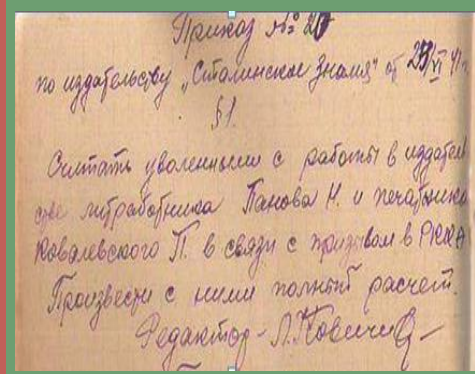 Приказ № 20
по издательству „Сталинское Знамя" от 23/VI 41 г.
§ 1.
Считать уволенными с работы в издатель
стве литработника Панова Н. и печатника
Ковалевского П. в связи с призывом в РККА
Произвести с ними полный расчет.
Редактор –